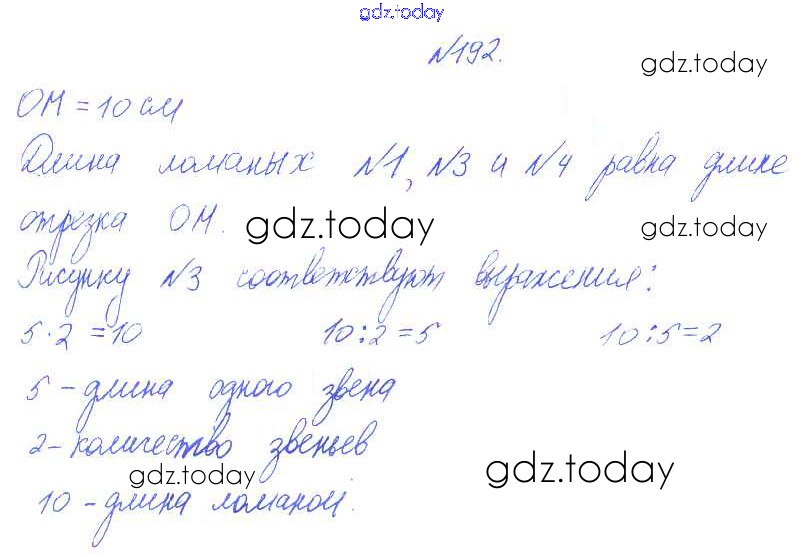 gdz.today
№192.
gdz.today
ОМ = 10 см
Длина ломаных №1, №3 и №4 равна длине
отрезка ОМ.
gdz.today
gdz.today
Рисунку №3 соответствуют выражения:
5·2 = 10 10:2 = 5 10:5 = 2
5 - длина одного звена
2 - количество звеньев
gdz.today
gdz.today
10 - длина ломаной.